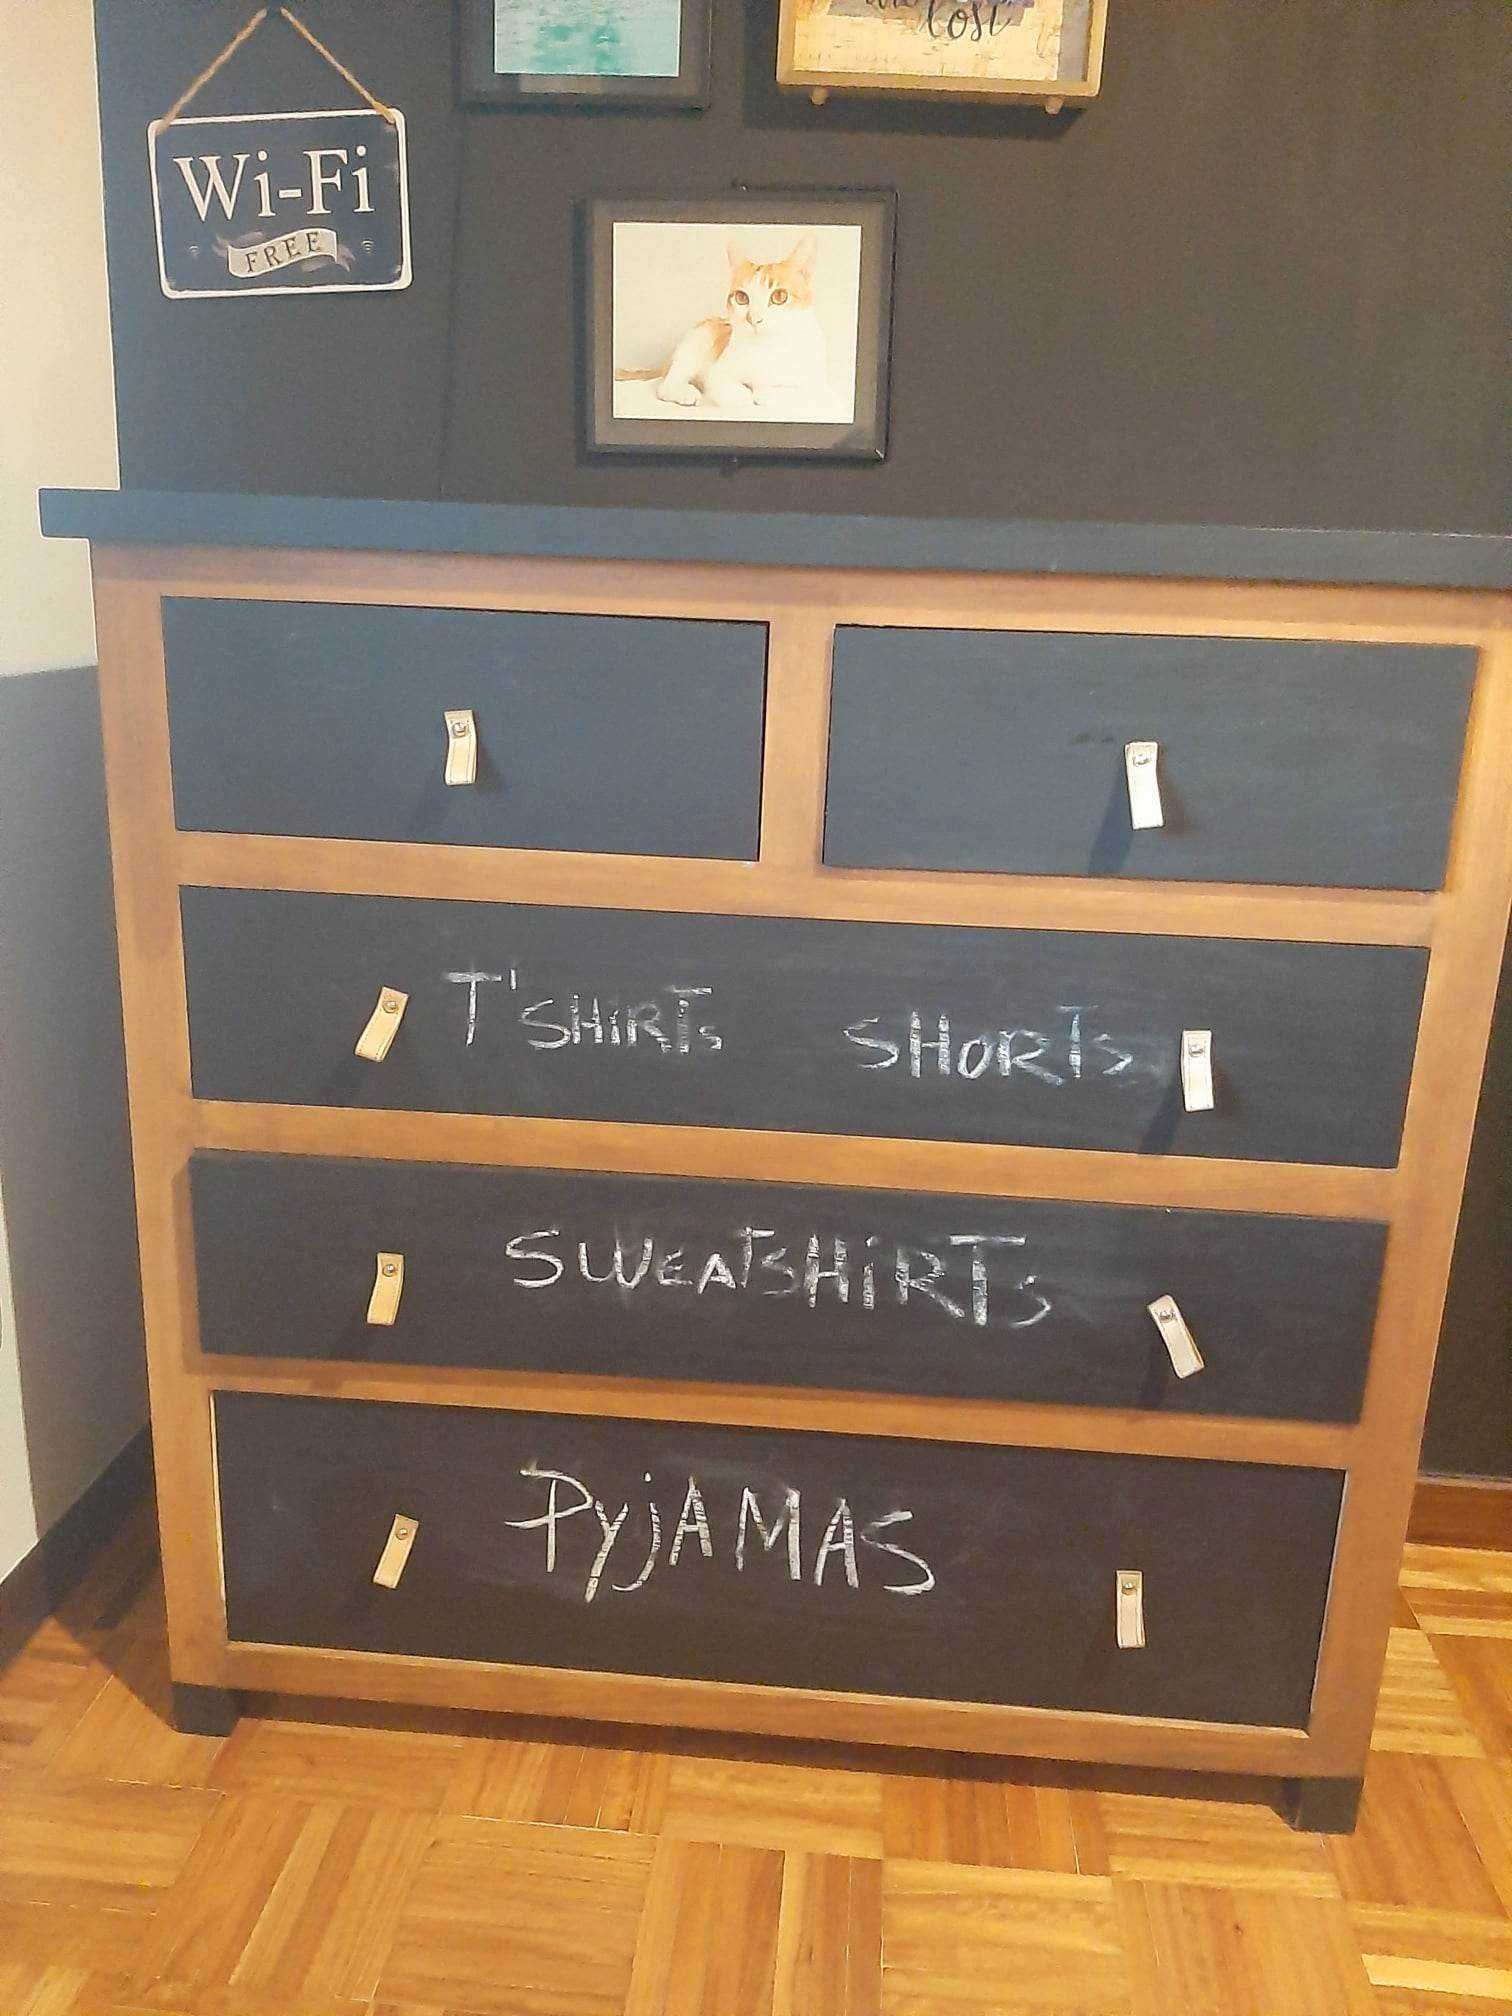 Lost
Wi-Fi
FREE
T'SHiRTs SHORTs
SWEATSHiRTs
PyjAMAS